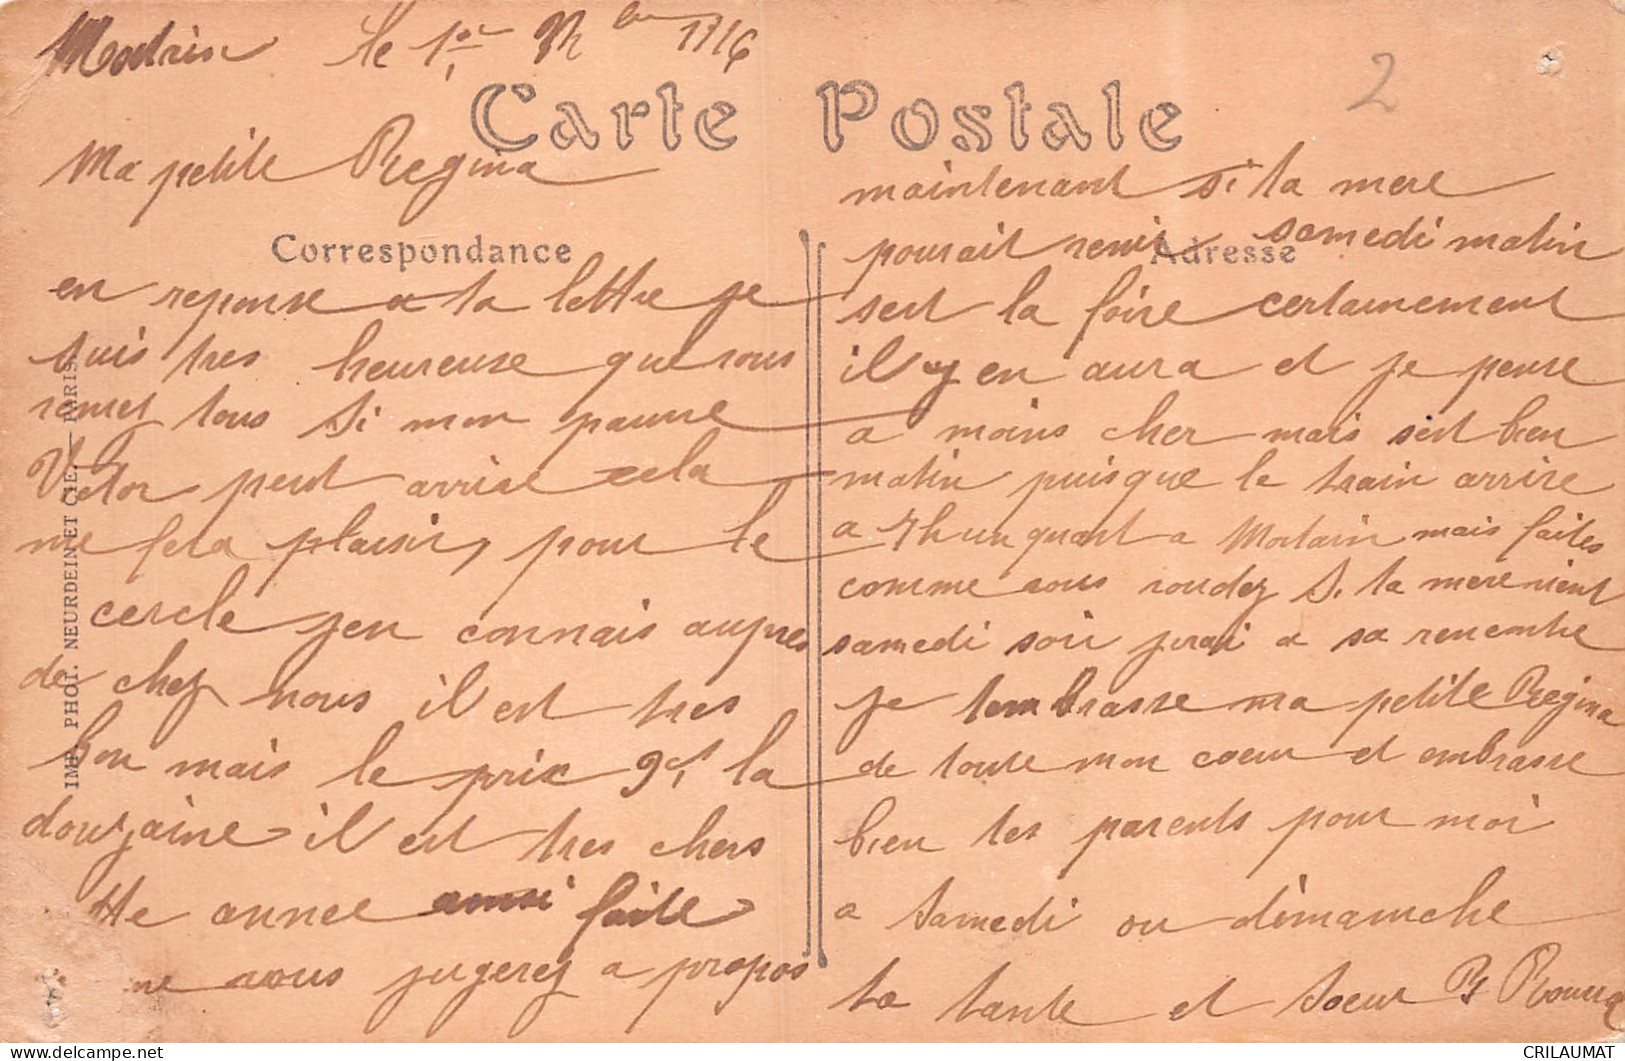 le 1er 1916
Carte Postale
2
Ma petite Regina
Correspondance
en reponse a ta lettre je
suis tres heureuse que vous
venez tous si mon pauvre
Victor peut arrive cela
me fera plaisir, pour le
cercle jen connais aupres
de chez nous il est tres
bon mais le prix 9f la
douzaine il est tres chers
tte annee ainsi faite
ne vous jugerez a propos
Adresse
maintenant si ta mere
pourait venir samedi matin
sert la foire certainement
il y en aura et je pense
a moins cher mais sert bien
matin puisque le train arrive
a 7h un quart a Mortain mais faites
comme vous voudez Si ta mere vient
samedi soir jirai a sa rencontre
je tembrasse ma petite Regina
de toute mon coeur et embrasse
bien tes parents pour moi
a Samedi ou dimanche
ta tante et soeur
IMP. PHOT. NEURDEIN ET CIE. — PARIS.
CRILAUMAT